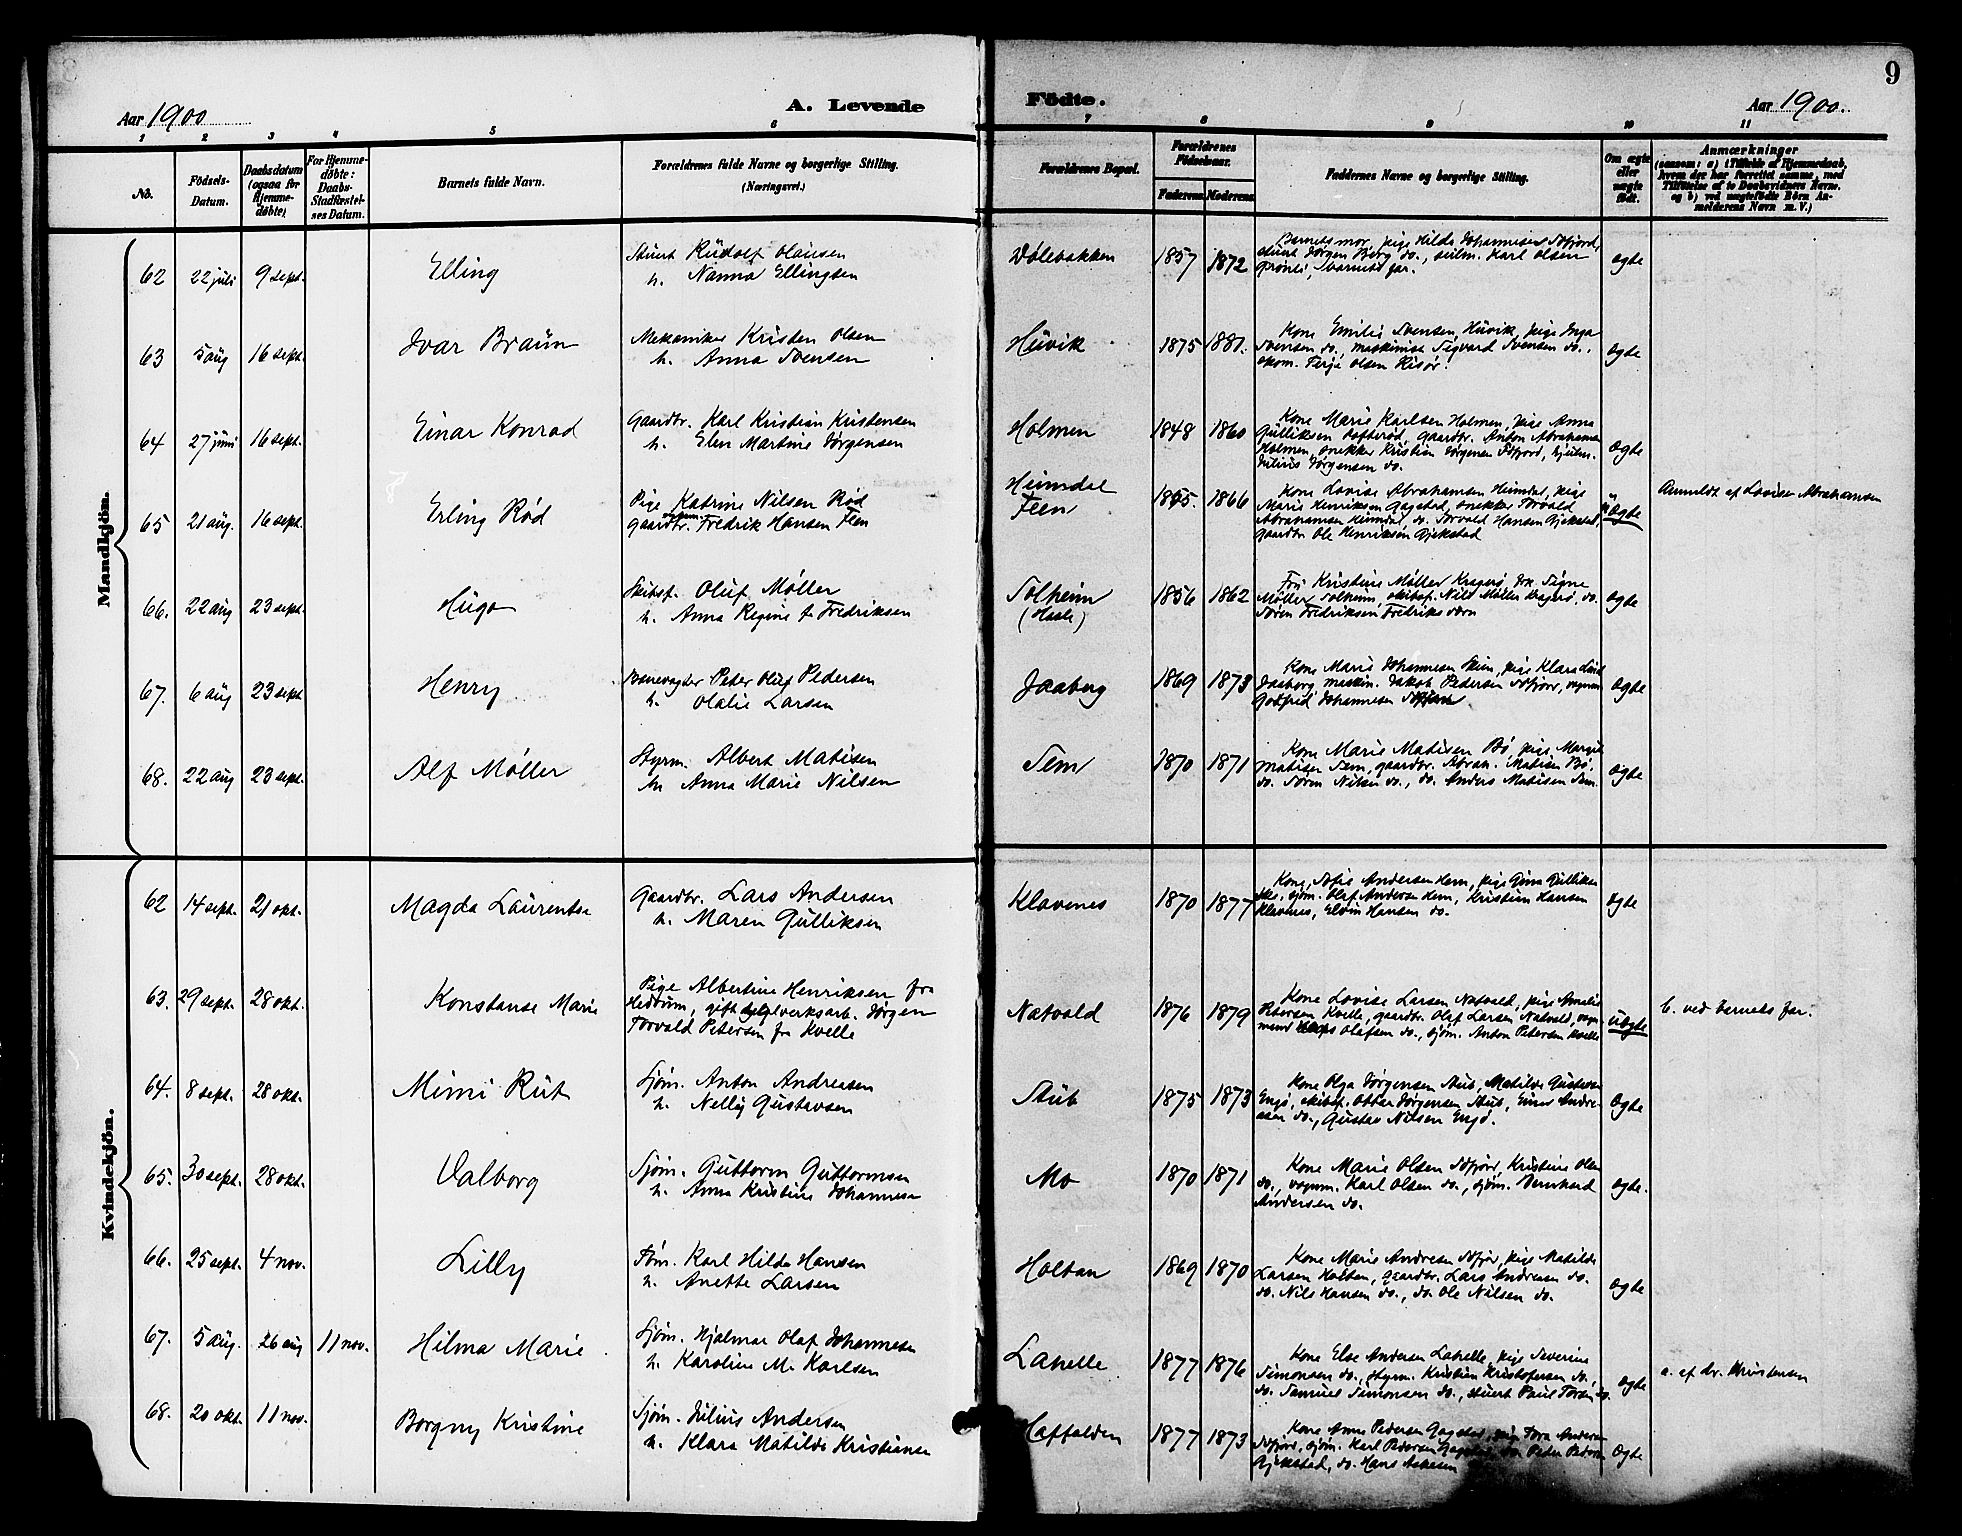 9
Aar 1900
A. Levende
Födte.
Aar 1900.
1 2 3 4 5 6 7 8 9 10 11
No.
Födsels-Datum.
Daabsdatum (ogsaa for Hjemmedöbte)
For Hjemmedöbte: Daabs-Stadfæstelses Datum.
Barnets fulde Navn.
Forældrenes fulde Navne og borgerlige Stilling.
(Næringsvei.)
Forældrenes Bopæl.
Forældrenes Födselsaar.
Faderens Moderens
Faddernes Navne og borgerlige Stilling.
Om ægte eller uægte födt.
Anmærkninger
(saasom: a) i Tilfælde af Hjemmedaab,
hvem der har forrettet samme, med
Tilföielse af to Daabsvidners Navne.
og b) ved uægtefödte Börn An-
melderens Navn m. V.)
Mandkjön.
62 22 juli 9 sept. Elling
Stuert Rudolf Olausen
h. Nanna Ellingsen
Dølebakken 1857 1872
Barnets mor, pige Hilda Johannisen Sdfjord,
stuert Jørgen Berg do., seilm. Karl Olsen
Grønli, barnets far.
ægte
63 5 aug 16 sept. Ivar Braun
Mekaniker Kristen Olsen
h. Anna Svensen
Huvik 1875 1881.
Kone Emilie Svensen Huvik, pige Inga
Svensen do., maskinist Sigvard Svensen do.,
ekom. Terje Olsen Risør.
ægte
64 27 juni 16 sept. Einar Konrad
Gaardbr. Karl Kristian Kristensen
h. Elen Martine Jørgensen
Holmen 1848 1860
Kone Marie Karlsen Holmen, pige Anna
Gulliksen Tofterød, gaardbr. Anton Abrahamsen
Holmen, snekker Kristian Jørgensen Sdfjord, hjulm.
Julius Jørgensen do.
ægte
65 21 aug. 16 sept. Erling Rød
Pige Katrine Nilsen Rød
gaardbr. Fredrik Hansen Feen
Heimdal
Feen
1865. 1866
Kone Lovise Abrahamsen Heimdal, pige
Marie Henriksen Gagstad, snekker Torvald
Abrahamsen Heimdal, do. Torvald Hansen Gjekstad,
gaardbr Ole Henriksen Gjekstad
uægte
Anmeldt af Lovise Abrahamsen
66. 22 aug 23 sept. Hugo
Skibsf. Oluf Møller
h. Anna Regine f. Fredriksen
Solheim
(Hasle)
1856 1862
Fru Kristine Møller Kragerø, frk. Signe
Møller Solheim, skibsf. Nils Møller Kragerø, do.
Søren Fredriksen Fredriksværn
ægte
67. 6 aug 23 sept Henry
Banevogter Peter Oluf Pedersen
h. Olalie Larsen
Jaaberg 1869 1873
Kone Marie Johannesen Skim, pige Klara Lind
Jaaberg maskin. Jakob Pedersen Sdfjord, vognm
Godfred Johannesen
ægte
68. 22 aug 23 sept. Alf Møller
Styrm. Albert Matisen
h. Anna Marie Nilsen
Sem 1870 1871
Kone Marie Matisen Bø, pige Margit
Matisen Sem, gaardbr. Abrah. Matisen Bø.
do. Søren Nilsen do., do. Anders Matisen Sem.
ægte
Kvindekjön.
62 14 sept. 21 okt. Magda Laurentse
Gaardbr. Lars Andersen
h. Maren Gulliksen
Klavenes 1870 1877
Kone Sofie Andersen Hem, pige Gina Gulliksen
sjøm. Olaf Andersen Hem, Kristian Hansen
Klavenes, Elvin Hansen do.
ægte
63. 29 sept. 28 okt. Konstanse Marie
Pige Albertine Henriksen fra
Hedrum, gift teglverksarb. Jørgen
Torvald Petersen fr Kvelle
Natvald 1876 1879
Kone Lovise Larsen Natvald, pige Amalie
Petersen Kvelle, gaardbr. Olaf Larsen Natvald, vogn-
mand Olafsen do., sjøm. Anton Petersen Kvelle
uægte
b. ved barnets far.
64. 8 sept. 28 okt. Mimi Rut
Sjøm. Anton Andreasen
h. Nelly Gustavsen
Stub 1875 1873
Kone Olga Jørgensen Stub, Matilde Gustavsen
Engø, skibsf. Ottar Jørgensen Stub, Einar Andre-
asen do., Gustav Nilsen Engø.
ægte
65. 30 sept. 28 okt. Valborg
Sjøm. Guttorm Guttormsen
h. Anna Kristine Johannesen
Mo 1870 1871
Kone Marie Olsen Sdfjord, Kristine Olsen
do., vognm. Karl Olsen do., sjøm. Bernhard
Andersen do.
ægte.
66. 25 sept. 4 nov. Lilly
Tøm. Karl Hilda Hansen
h. Anette Larsen
Holtan 1869 1870
Kone Marie Andresen Sdfjord, pige Matilde
Larsen Holtan, gaardbr. Lars Andresen do.
do. Nils Hansen do., do. Ole Nilsen do.
ægte
67. 5 aug. 26 aug 11 nov. Hilma Marie
Sjøm. Hjalmar Olaf Johannesen
h. Karoline M. Karlsen
Lahelle 1877 1876
Kone Else Andersen Lahelle, pige Severine
Simonsen do., styrm. Kristian Kristofersen do.,
do. Samuel Simonsen do., stuert Paul Torsen do.
ægte
a. af dr. Kristensen
68. 20 okt. 11 nov. Borgny Kristine
Sjøm. Julius Andersen
h. Klara Matilde Kristiansen
Haffalden 1877 1873
Kone Anne Pedersen Gagstad, pige Tora Andersen
Sdfjord, sjøm. Karl Pedersen Gagstad, do. Peder Pedersen
Gjekstad, do. Hans
ægte